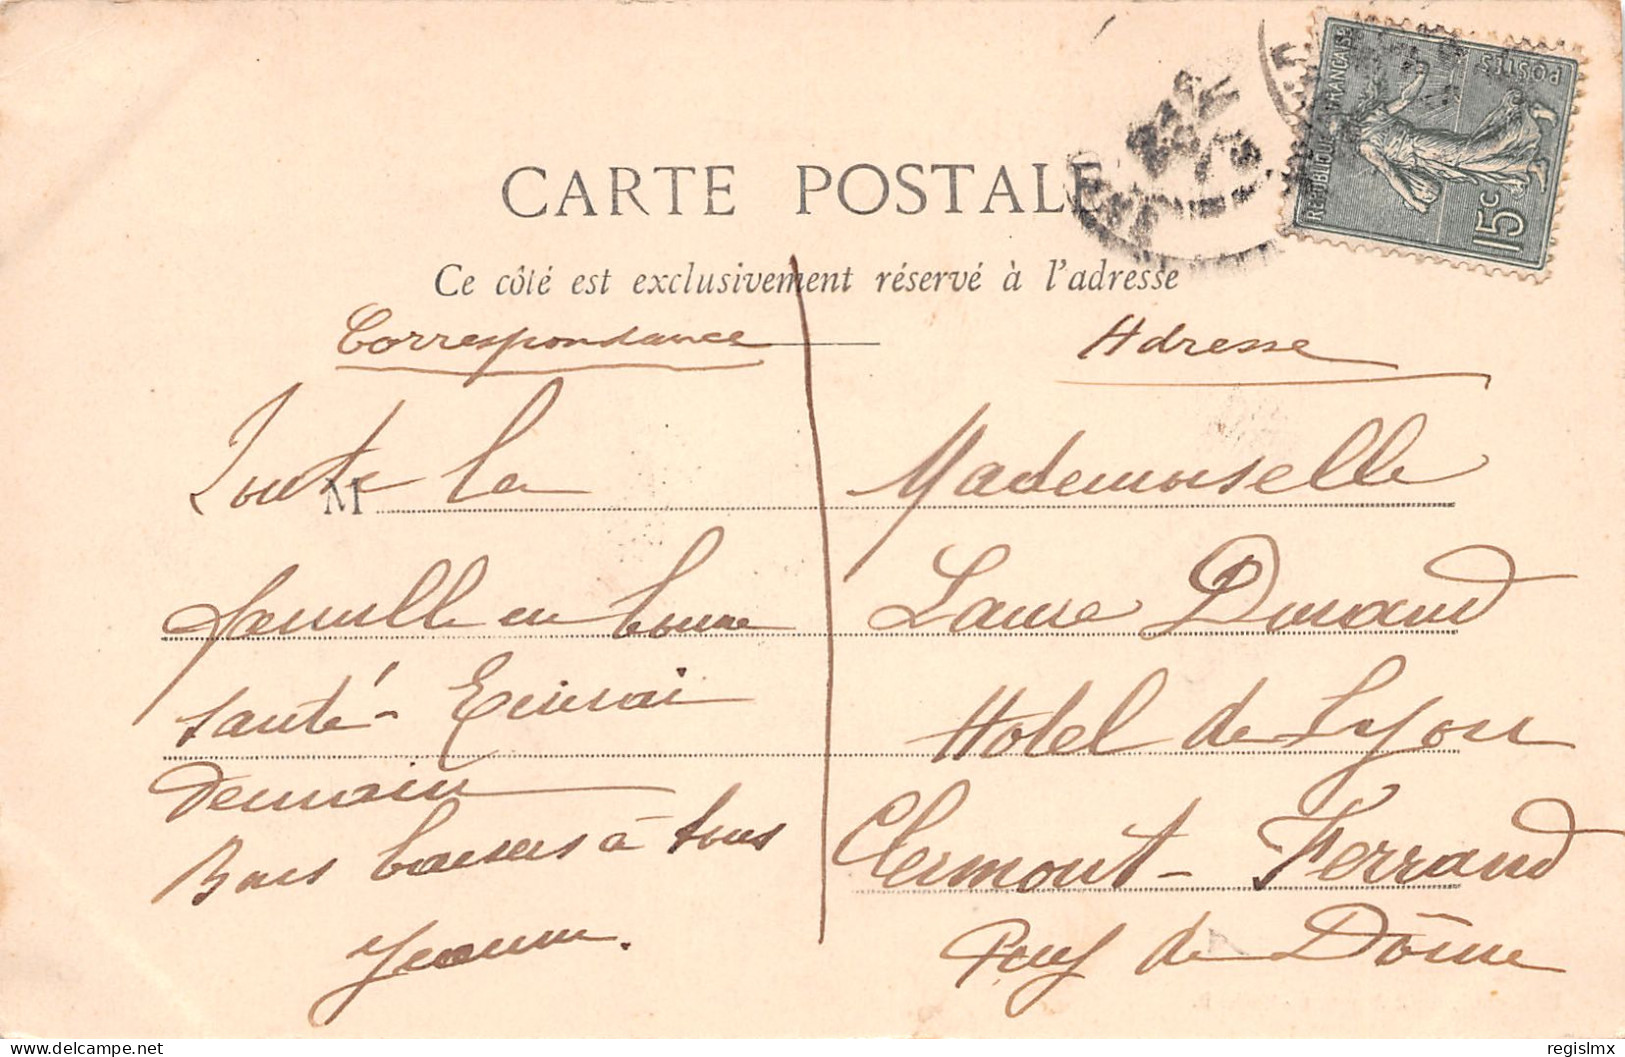 CARTE POSTALE
Ce côté est exclusivement réservé à l'adresse
RÉPUBLIQUE FRANÇAISE
POSTES
15c
Correspondance
Toute la
famille en bonne
santé - Écrirai
demain
Bons baisers à tous
Jeanne.
Adresse
M
Mademoiselle
Laure Durand
Hotel de Lyon
Clermont-Ferrand
Puy de Dôme
delcampe.net
regislmx